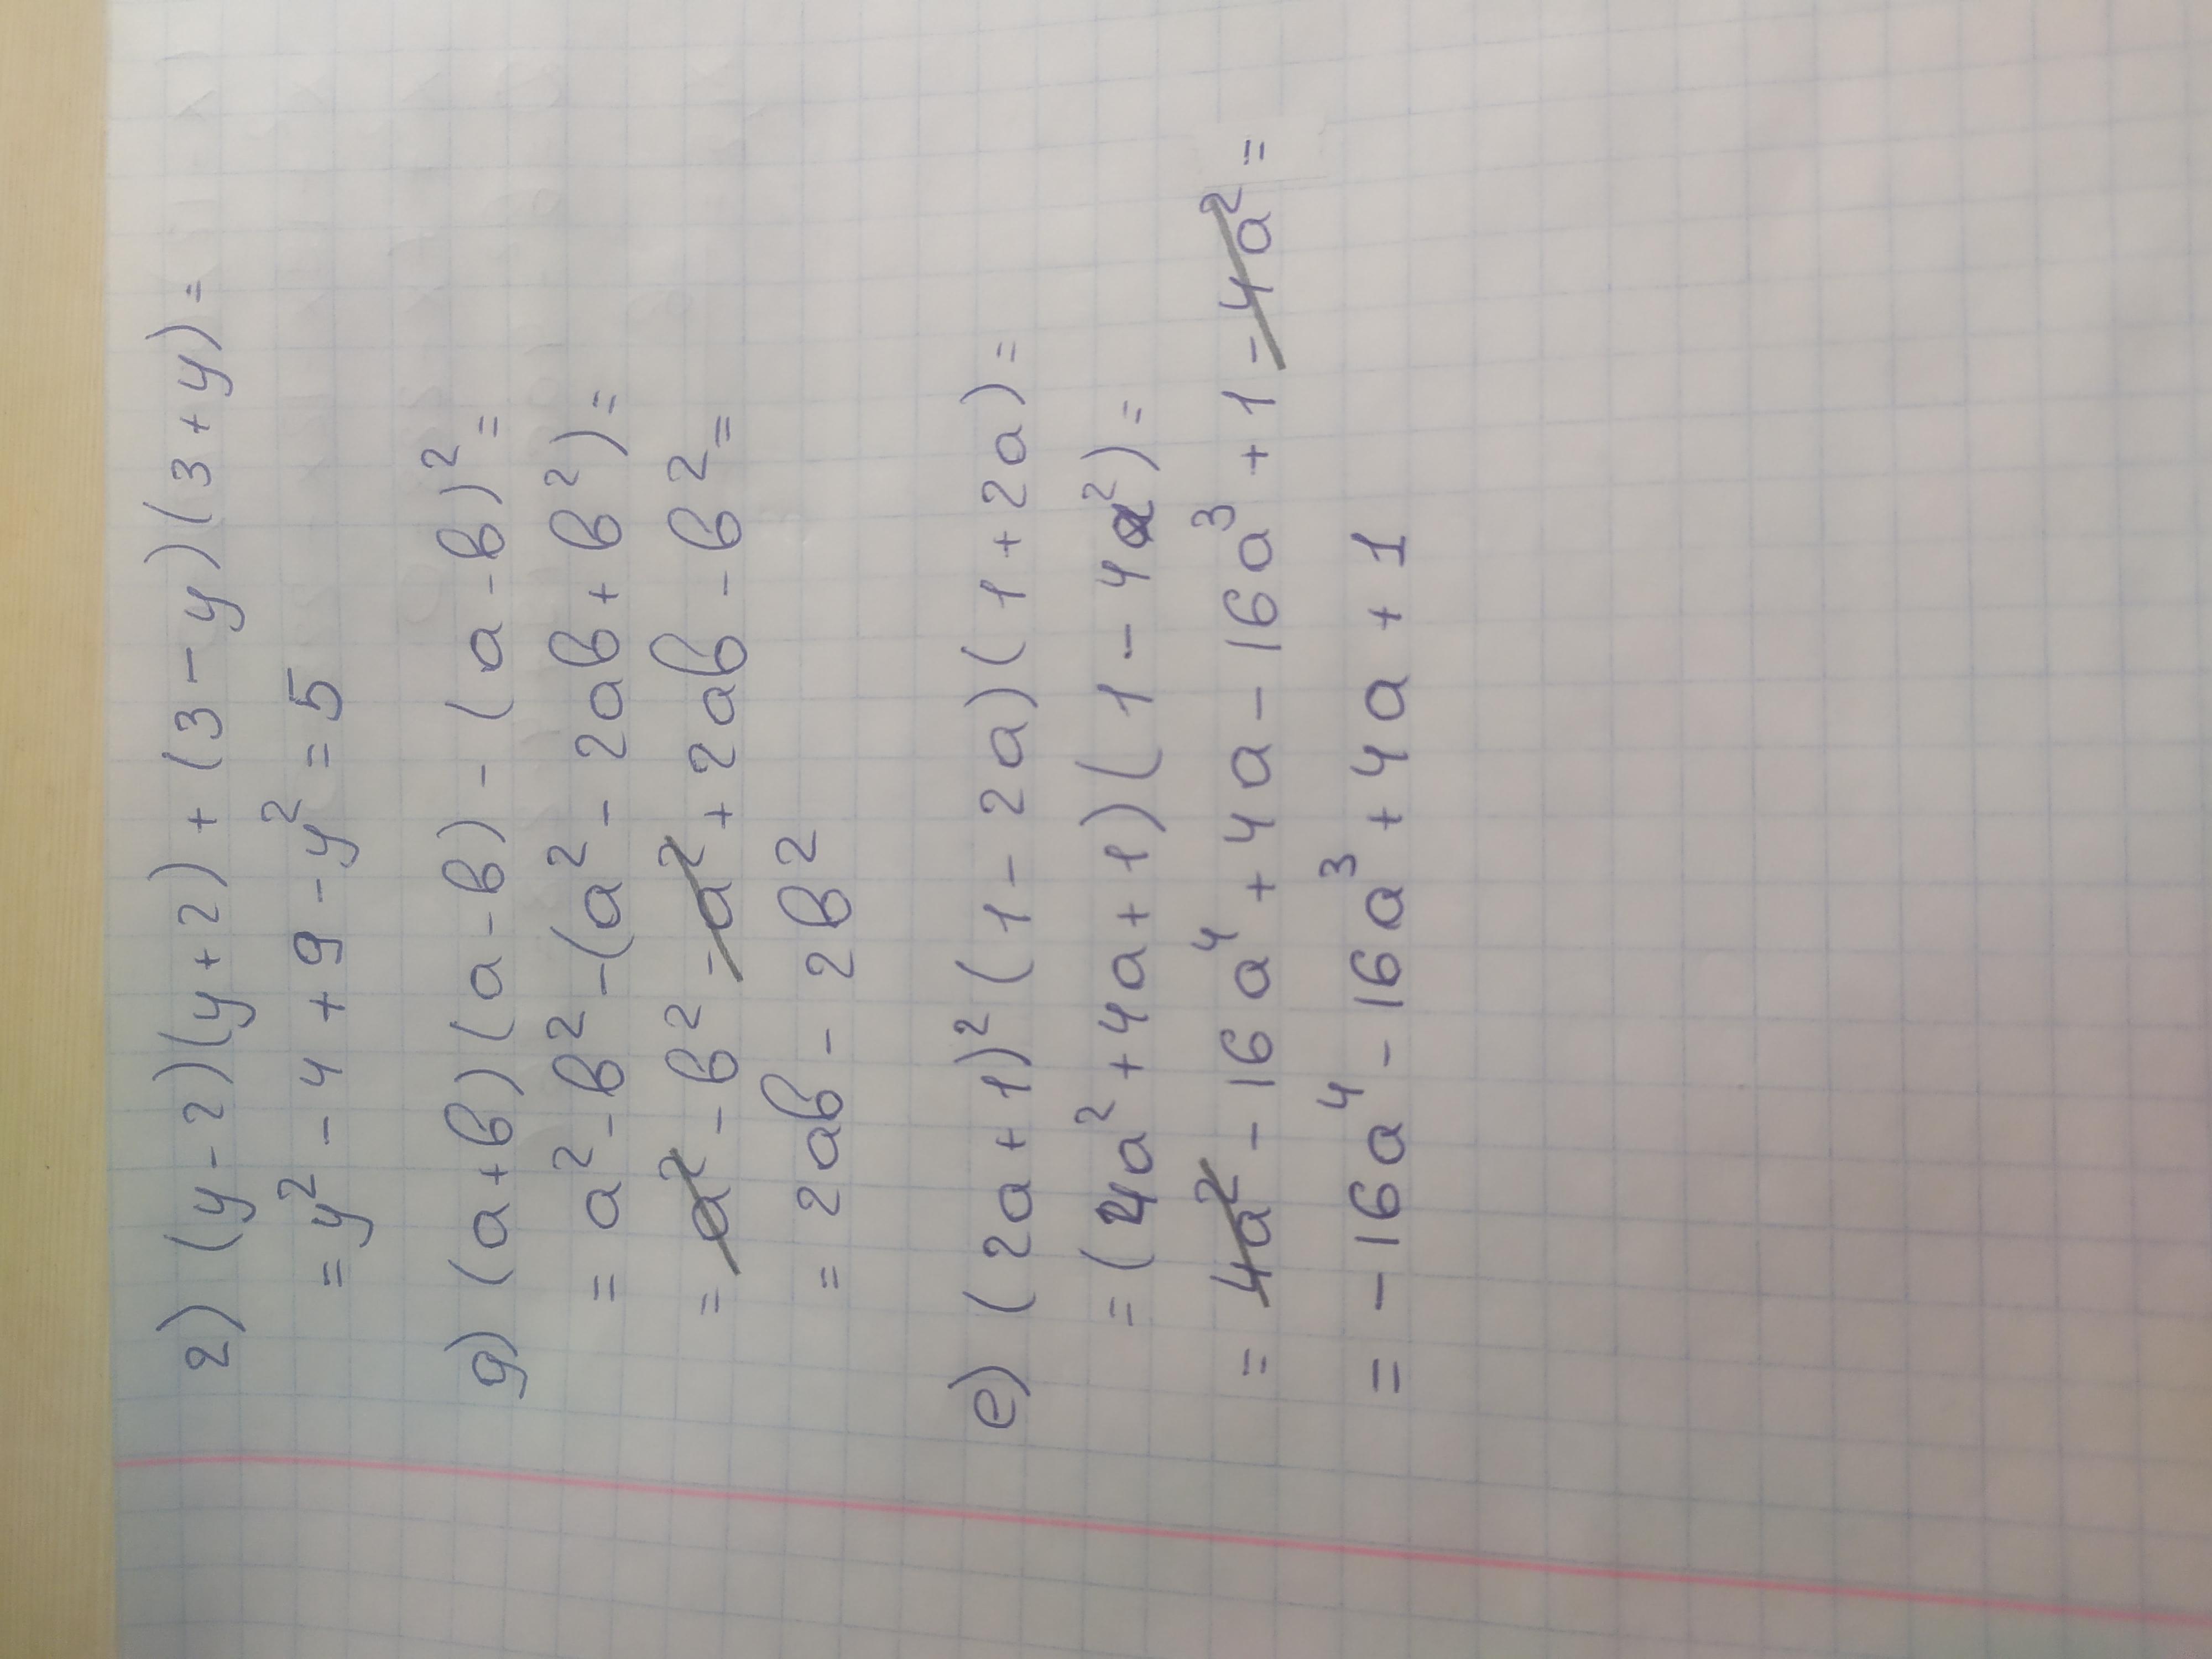 г) (y-2)(y+2) + (3-y)(3+y) =
= y² - 4 + 9 - y² = 5
д) (a+b)(a-b) - (a-b)² =
= a² - b² - (a² - 2ab + b²) =
= a² - b² - a² + 2ab - b² =
= 2ab - 2b²
е) (2a+1)² (1-2a)(1+2a) =
= (4a² + 4a + 1)(1 - 4a²) =
= 4a² - 16a⁴ + 4a - 16a³ + 1 - 4a² =
= -16a⁴ - 16a³ + 4a + 1